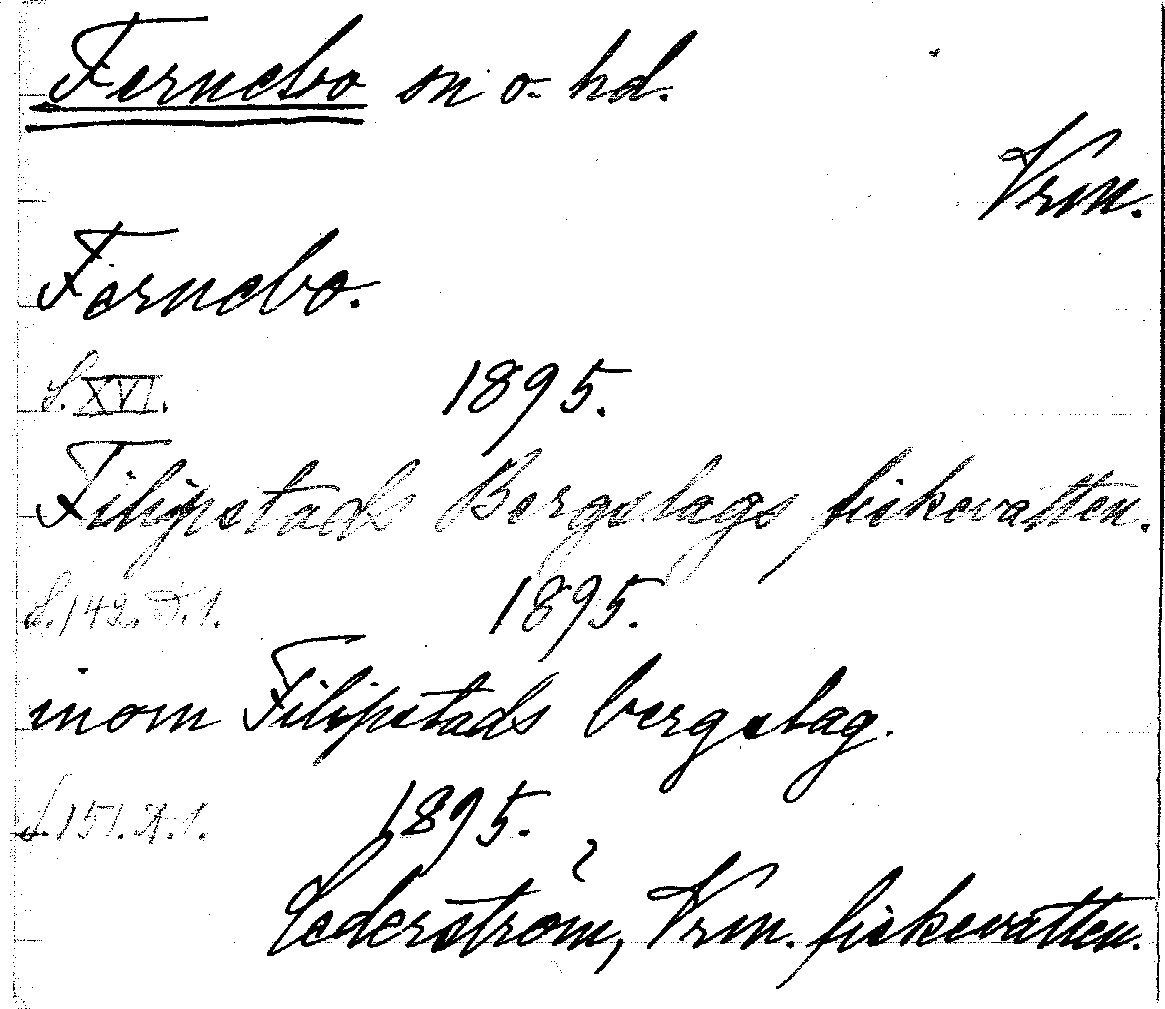 Fernebo sn o. hd.
Vrm.
Fernebo.
S. XVI. 1895.
Filipstads Bergslags fiskevatten.
S. 149. A. 1. 1895.
inom Filipstads bergslag.
S. 151. A. 1. 1895.
Cederström, Vrm. fiskevatten.